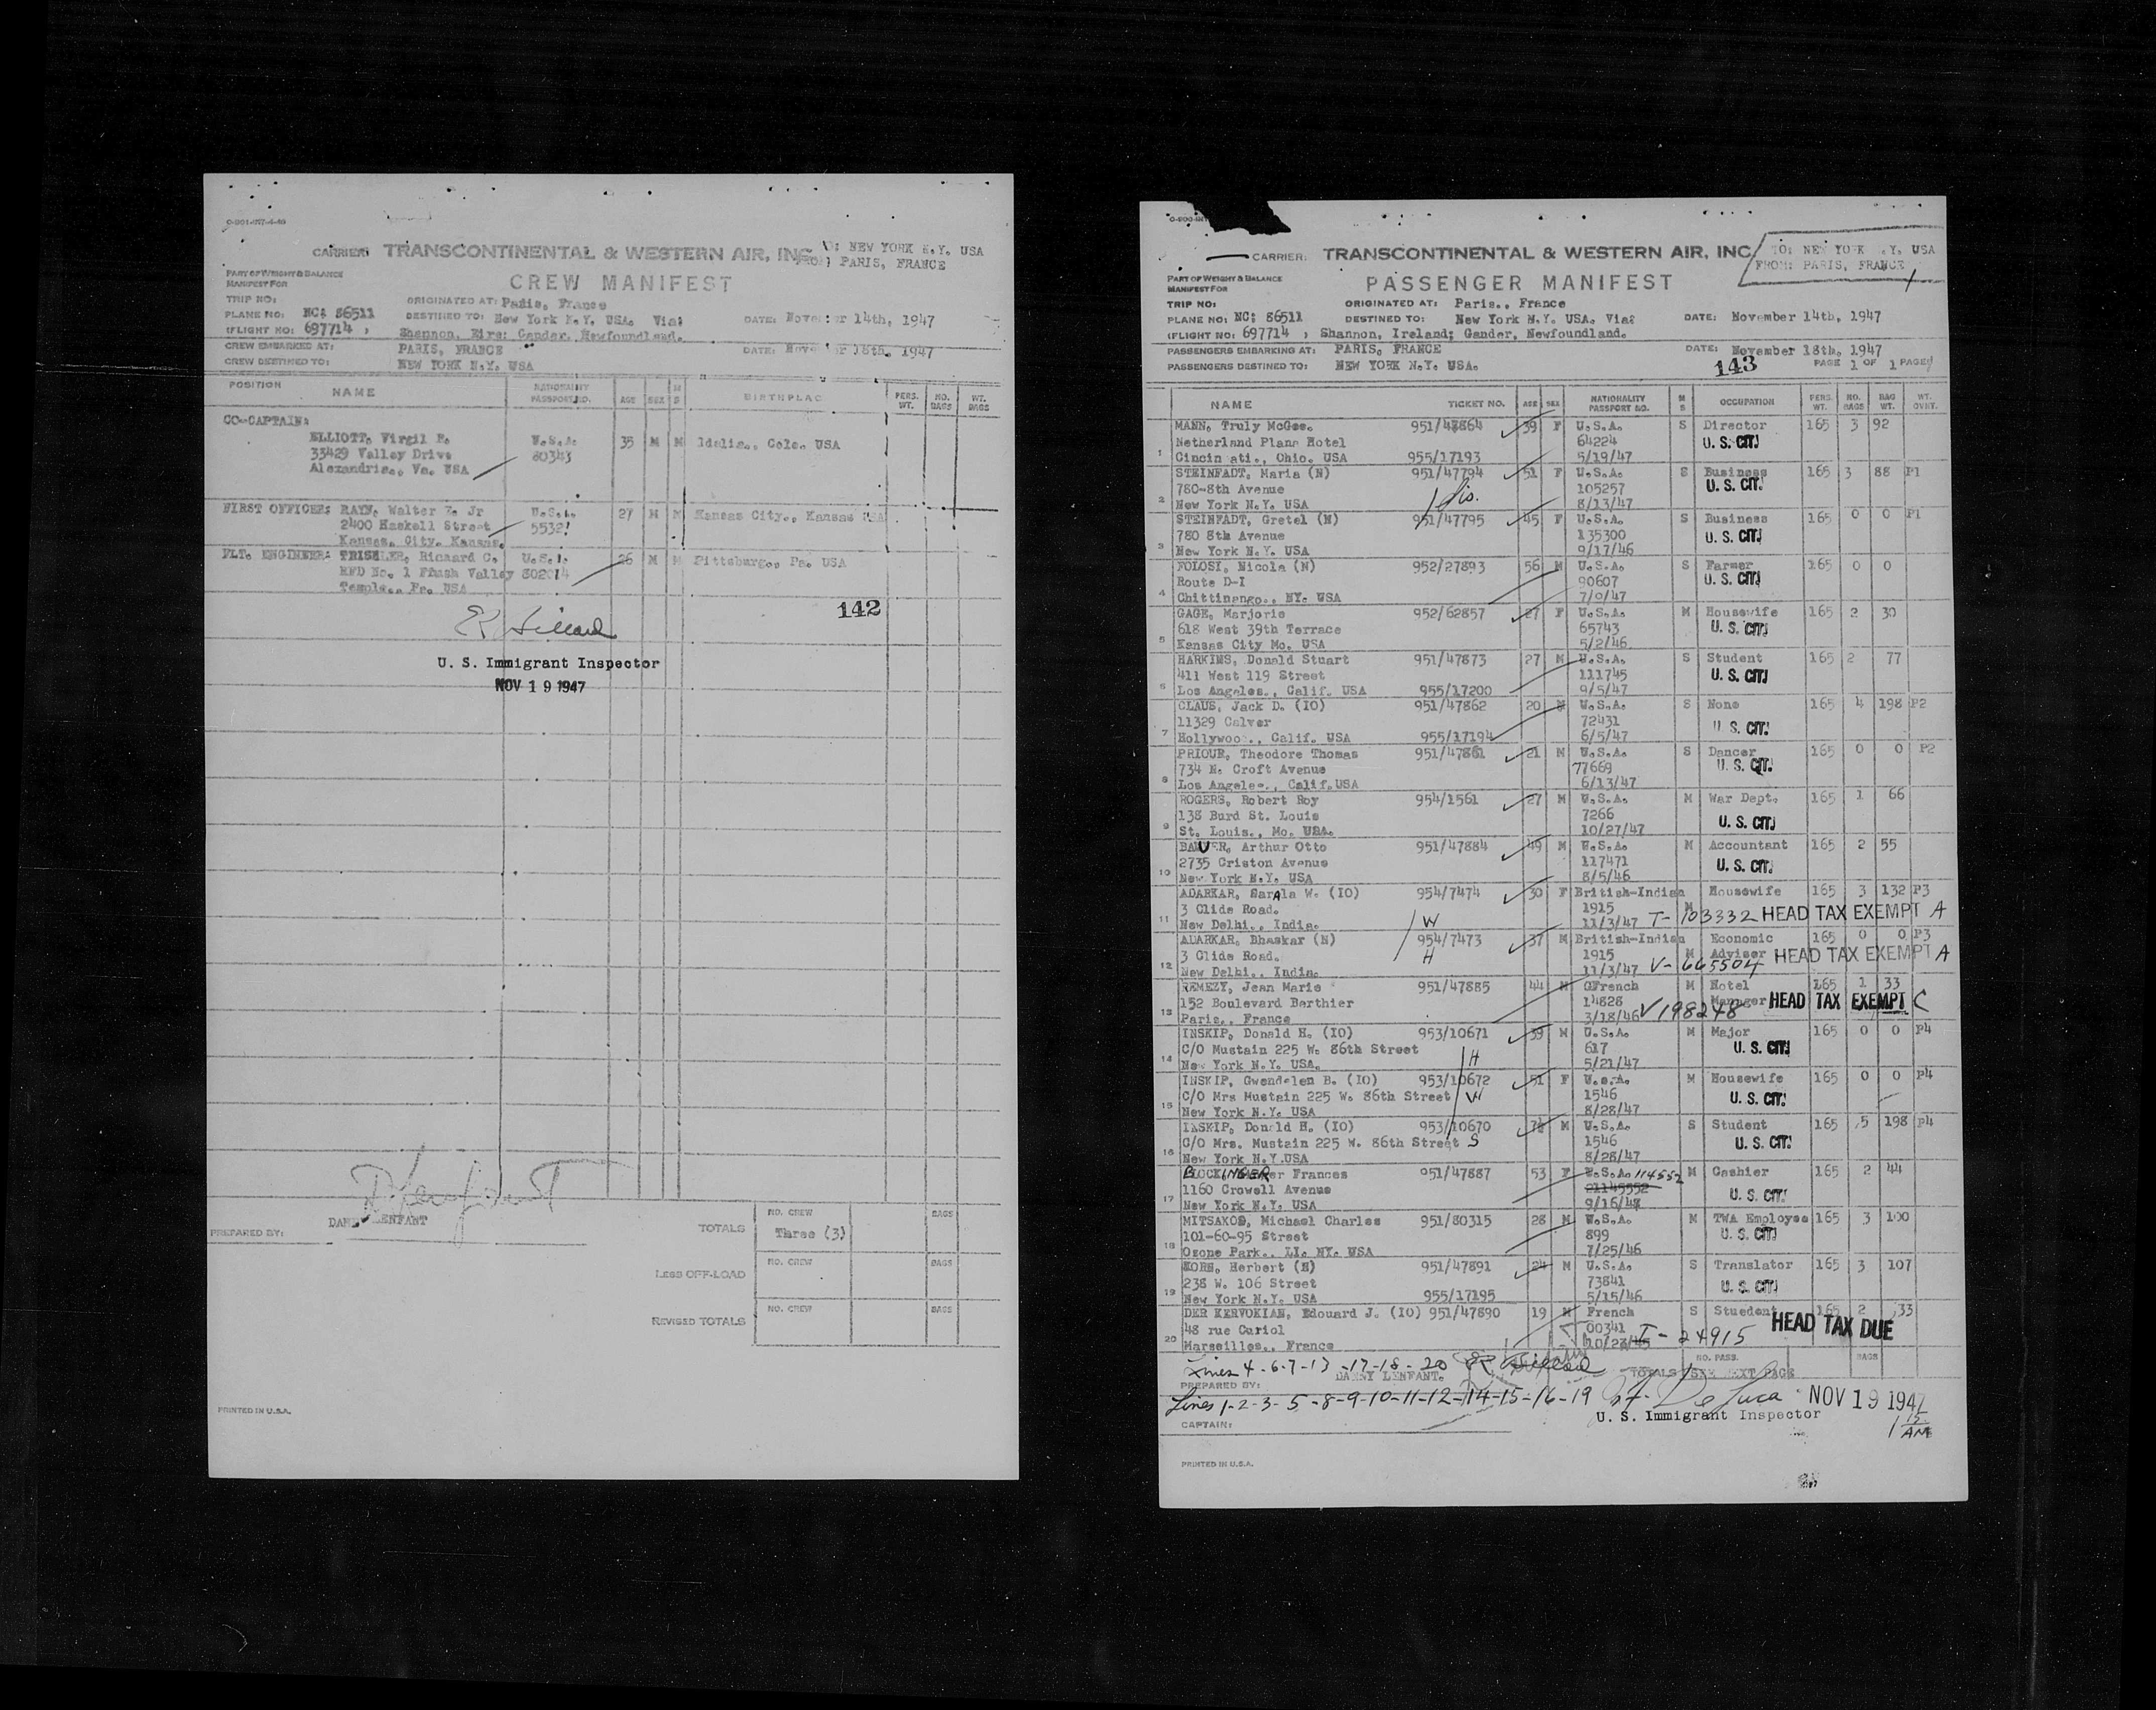 CARRIER: TRANSCONTINENTAL & WESTERN AIR, INC
NEW YORK N.Y. USA
PARIS, FRANCE
CREW MANIFEST
PART OF WEIGHT & BALANCE
MANIFEST FOR
TRIP NO:
ORIGINATED AT: Paris, France
PLANE NO: NC: 86511
DESTINED TO: New York N.Y. USA. Via:
DATE: November 14th, 1947
(FLIGHT NO: 697714 )
Shannon, Eire; Gander, Newfoundland.
CREW EMBARKED AT: PARIS, FRANCE
DATE: November 18th, 1947
CREW DESTINED TO: NEW YORK N.Y. USA
POSITION NAME NATIONALITY PASSPORT NO. AGE SEX M S BIRTHPLAC PERS. WT. NO. BAGS WT. BAGS
CO-CAPTAIN:
ELLIOTT, Virgil E. U.S.A. 35 M M Idalia., Colo. USA
33429 Valley Drive 80343
Alexandria., Va. USA
FIRST OFFICER: RAYN, Walter E. Jr U.S.A. 27 M M Kansas City., Kansas USA
2400 Haskell Street
Kansas. City. Kansas.
FLT. ENGINEER: TRISHLER, Richard C. U.S.A. 26 M M Pittsburg., Pa. USA
RFD No. 1 Valley
Temple., Pa. USA
142
U. S. Immigrant Inspector
NOV 19 1947
LENFANT
PREPARED BY:
TOTALS NO. CREW BAGS
Three (3)
LESS OFF-LOAD NO. CREW BAGS
REVISED TOTALS NO. CREW BAGS
PRINTED IN U.S.A.
CARRIER: TRANSCONTINENTAL & WESTERN AIR, INC
TO: NEW YORK N.Y. USA
FROM: PARIS, FRANCE
PART OF WEIGHT & BALANCE
MANIFEST FOR
PASSENGER MANIFEST
TRIP NO:
ORIGINATED AT: Paris., France
PLANE NO: NC: 86511
DESTINED TO: New York N.Y. USA. Via:
DATE: November 14th, 1947
(FLIGHT NO: 697714 ) Shannon, Ireland; Gander, Newfoundland.
PASSENGERS EMBARKING AT: PARIS, FRANCE
DATE: November 18th, 1947
PASSENGERS DESTINED TO: NEW YORK N.Y. USA.
143
PAGE 1 OF 1 PAGE
NAME TICKET NO. AGE SEX NATIONALITY PASSPORT NO. M S OCCUPATION PERS. WT. NO. BAGS BAG WT. WT. OVHT.
MANN, Truly McGee. 951/47864 39 F U.S.A. S Director 165 3 92
Netherland Plane Hotel 64224 U. S. CIT.
1 Cincin ati., Ohio. USA 955/17193 5/19/47
STEINFADT, Maria (N) 951/47794 51 F U.S.A. S Business 165 3 88 P1
780-8th Avenue 105257 U. S. CIT.
2 New York N.Y. USA 8/13/47
STEINFADT, Gretel (N) 951/47795 45 F U.S.A. S Business 165 0 0 P1
780 8th Avenue 135300 U. S. CIT.
3 New York N.Y. USA 9/17/46
FOLOSI, Nicola (N) 952/27893 56 M U.S.A. S Farmer 165 0 0
Route D-I 90607 U. S. CIT.
4 Chittinango., NY. USA 7/0/47
GAGE, Marjorie 952/62857 27 F U.S.A. M Housewife 165 2 30
618 West 39th Terrace 65743 U. S. CIT.
5 Kansas City Mo. USA 5/2/46
HARKINS, Donald Stuart 951/47873 27 M U.S.A. S Student 165 2 77
411 West 119 Street 111745 U. S. CIT.
6 Los Angeles., Calif. USA 955/17200 9/5/47
CLAUS, Jack D. (IO) 951/47862 20 M U.S.A. S None 165 4 198 P2
11329 Calver 72431 U. S. CIT.
7 Hollywoo., Calif. USA 955/17194 6/5/47
PRIOUR, Theodore Thomas 951/47861 21 M U.S.A. S Dancer 165 0 0 P2
734 N. Croft Avenue 77669 U. S. CIT.
8 Los Angeles., Calif.USA 6/13/47
ROGERS, Robert Roy 954/1561 27 M U.S.A. M War Dept. 165 1 66
138 Burd St. Louis 7266 U. S. CIT.
9 St. Louis., Mo. USA. 10/27/47
BAUER, Arthur Otto 951/47884 49 M U.S.A. M Accountant 165 2 55
2735 Criston Avenue 117471 U. S. CIT.
10 New York N.Y. USA 8/5/46
ADARKAR, SarAla W. (IO) 954/7474 30 F British-Indian Housewife 165 3 132 P3
3 Clide Road. W 1915 M
11 New Delhi., India. 11/3/47 T-103332 HEAD TAX EXEMPT A
ADARKAR, Bhaskar (N) 954/7473 37 M British-Indian Economic 165 0 0 P3
3 Clide Road. H 1915 M Adviser HEAD TAX EXEMPT A
12 New Delhi., India. 11/3/47 V-665504
REMEZY, Jean Marie 951/47885 44 M French M Hotel 165 1 33
152 Boulevard Berthier 14828 Manager HEAD TAX EXEMPT C
13 Paris., France 3/18/46 V198248
INSKIP, Donald H. (IO) 953/10671 39 M U.S.A. M Major 165 0 0 P4
C/O Mustain 225 W. 86th Street H 617 U. S. CIT.
14 New York N.Y. USA. 5/21/47
INSKIP, Gwendelen B. (IO) 953/10672 51 F U.S.A. M Housewife 165 0 0 P4
C/O Mrs Mustain 225 W. 86th Street W 1546 U. S. CIT.
15 New York N.Y. USA 8/28/47
INSKIP, Donald H. (IO) 953/10670 M U.S.A. S Student 165 5 198 P4
C/O Mrs. Mustain 225 W. 86th Street S 1546 U. S. CIT.
16 New York N.Y.USA 8/28/47
BLOCKINGER Frances 951/47887 53 F U.S.A. 114552 M Cashier 165 2 44
1160 Crowell Avenue 21145552 U. S. CIT.
17 New York N.Y. USA 9/16/48
MITSAKOS, Michael Charles 951/80315 28 M U.S.A. M TWA Employee 165 3 100
101-60-95 Street 899 U. S. CIT.
18 Ozone Park., LI. NY. USA 7/25/46
KORN, Herbert (N) 951/47891 24 M U.S.A. S Translator 165 3 107
238 W. 106 Street 73841 U. S. CIT.
19 New York N.Y. USA 955/17195 5/15/46
DER KERVOKIAN, Edouard J. (IO) 951/47890 19 M French S Stuedent 165 2 33
48 rue Curiol 00341 HEAD TAX DUE
20 Marseilles., France 10/23/45 I-24915
Lines 4-6-7-13-17-18-20
DANNY LENFANT.
TOTALS SEE NEXT PAGE NO. PASS. BAGS
PREPARED BY:
Lines 1-2-3-5-8-9-10-11-12-14-15-16-19 De Luca NOV 19 1947
U. S. Immigrant Inspector
1 15 AM
CAPTAIN:
PRINTED IN U.S.A.